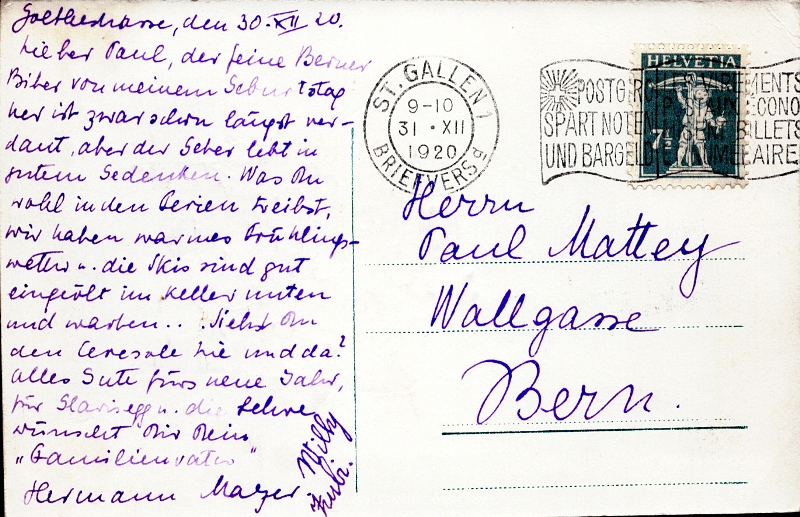 Goethestrasse, den 30. XII 20.
Lieber Paul, der feine Berner
Biber von meinem Geburtstag
her ist zwar schon längst ver-
daut, aber der Geber lebt in
gutem Gedenken. Was Du
wohl in den Ferien treibst,
wir haben warmes Frühlings-
wetter u. die Skis sind gut
eingeölt im Keller unten
und warten... Siehst Du
den Ceresole hie und da?
Alles Gute fürs neue Jahr,
für Glarisegg u. die Lehre
wünscht Dir Dein
"Familienvater"
Hermann Mazer.
Willy
ST. GALLEN 1
9-10
31·XII
1920
BRIEFVERS d
HELVETIA
7½
POSTG
SPART NOTEN
UND BARGELD
VIREMENTS
ECONO
BILLETS
Herrn
Paul Mattey
Wallgasse
Bern.